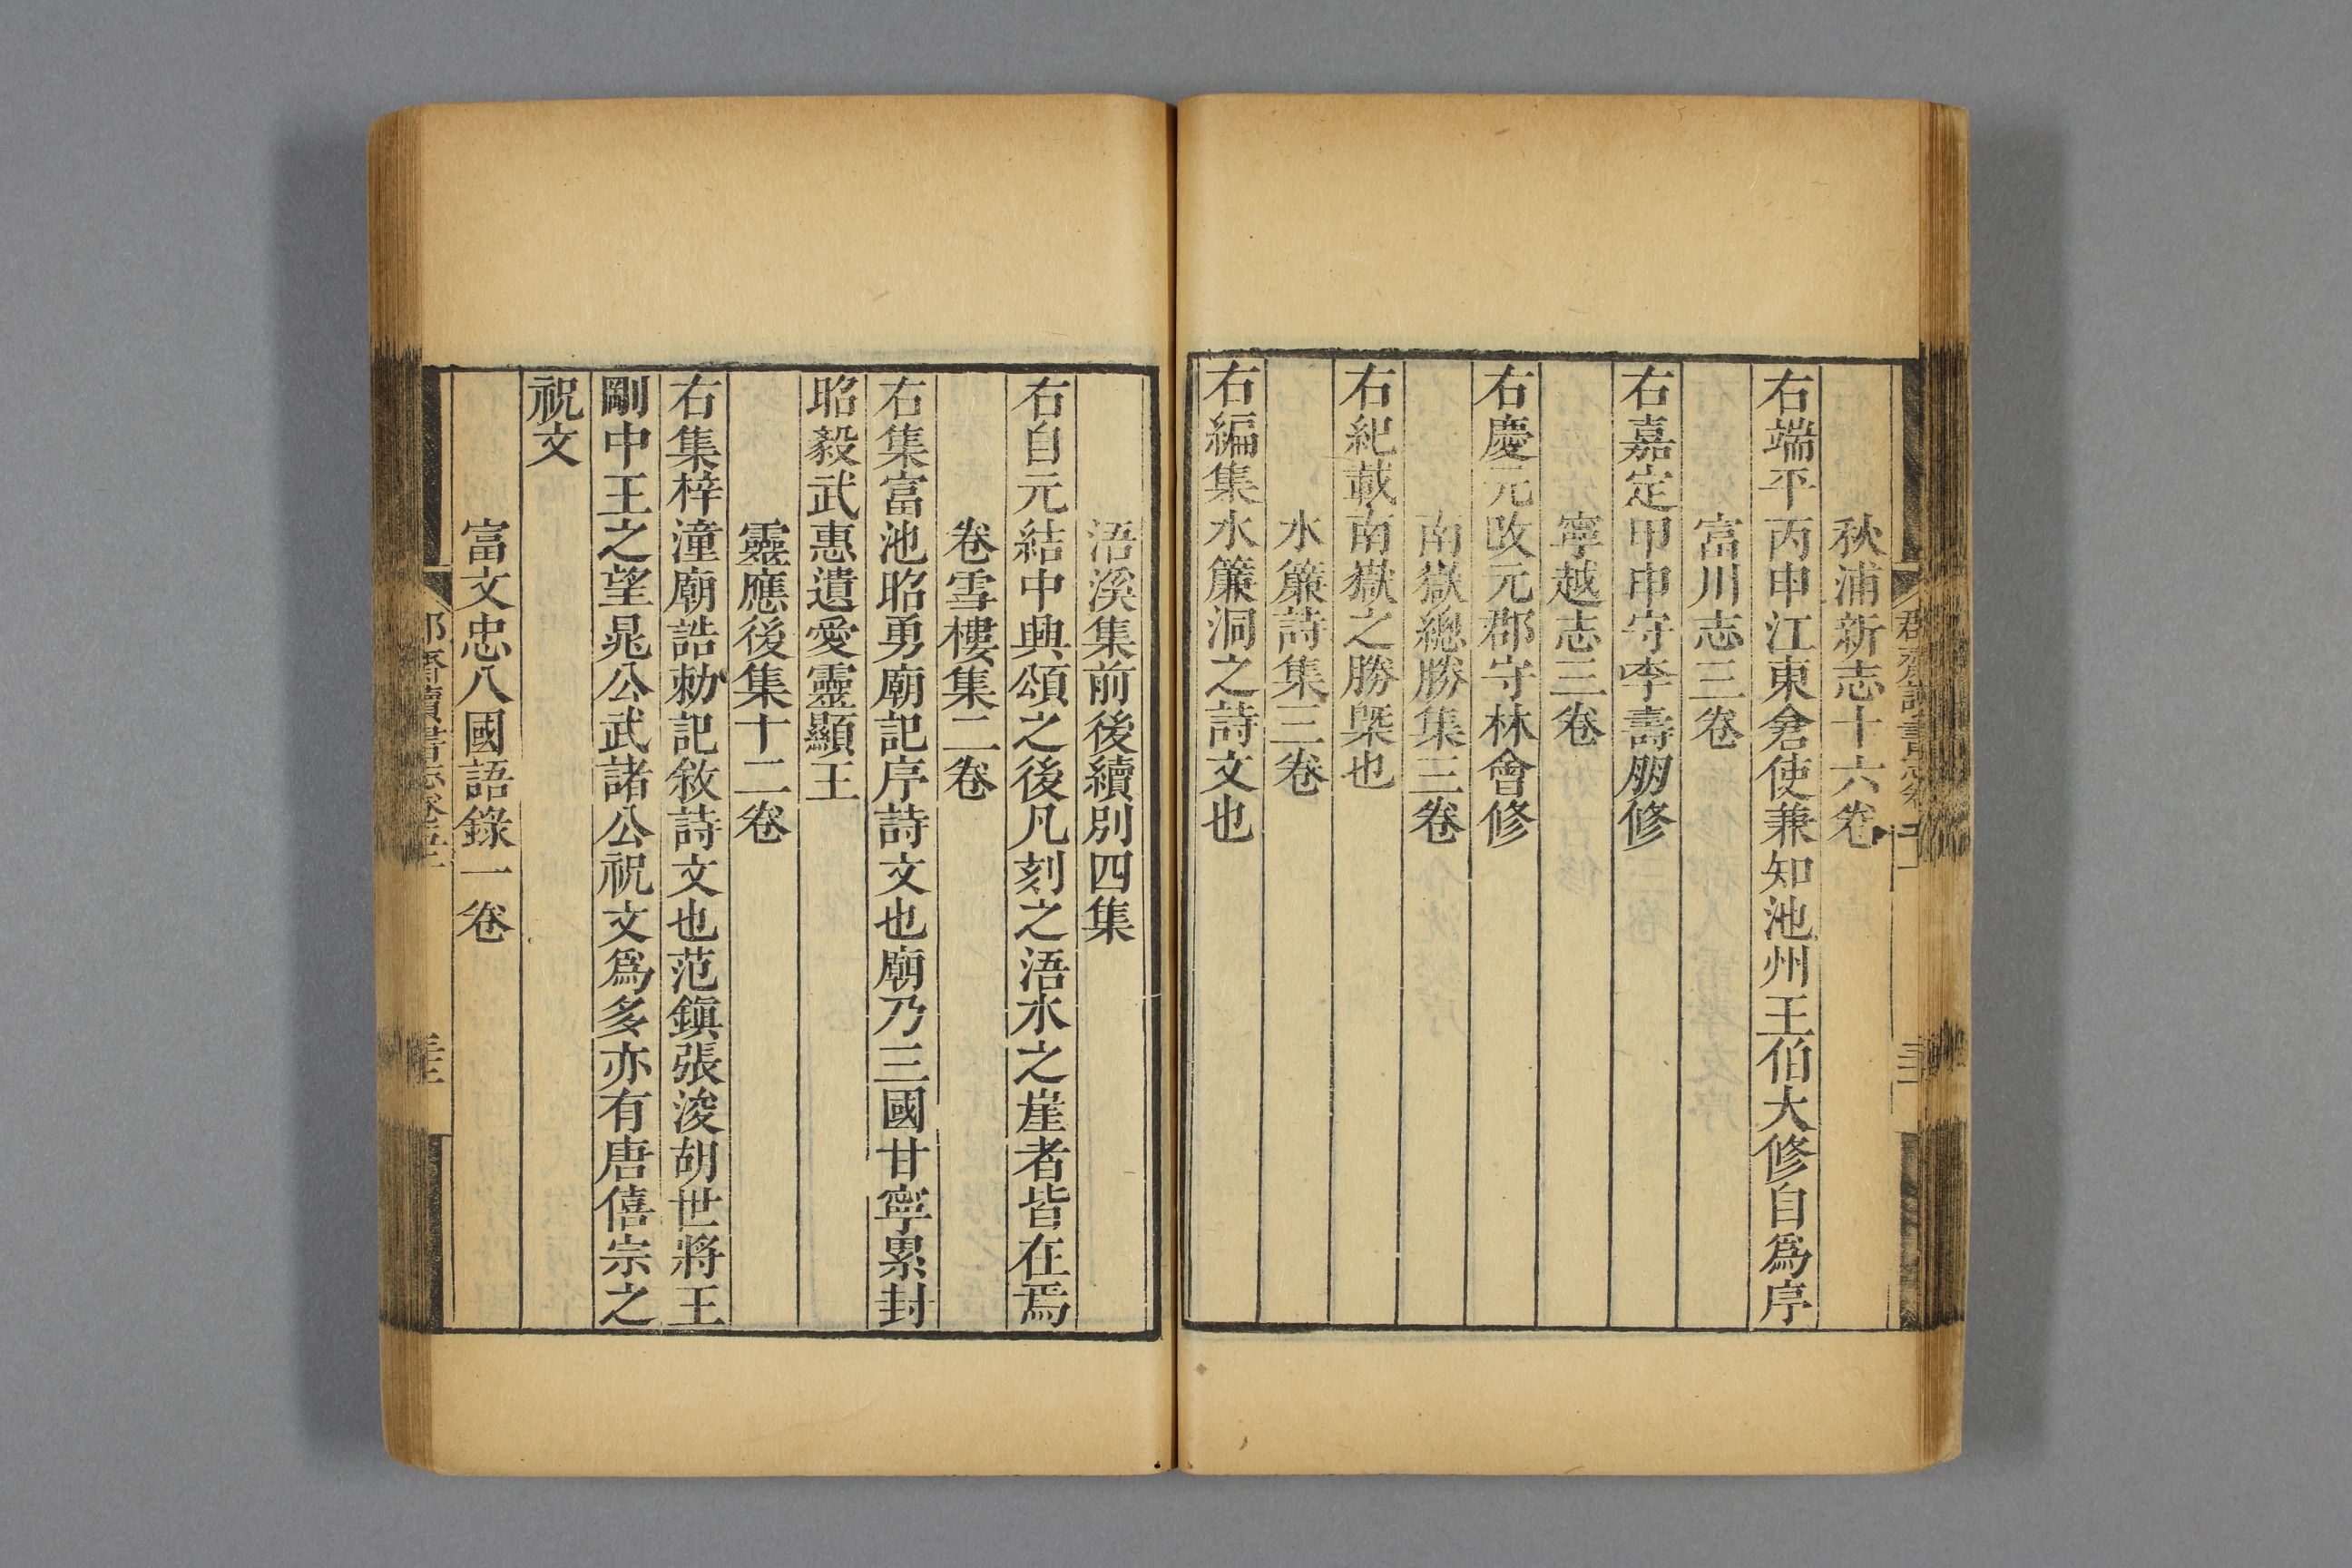 秋浦新志十六卷
右端平丙申江東倉使兼知池州王伯大修自爲序
富川志三卷
右嘉定甲申守李壽朋修
寧越志三卷
右慶元改元郡守林會修
南嶽總勝集三卷
右紀載南嶽之勝槩也
水簾詩集三卷
右編集水簾洞之詩文也
浯溪集前後續別四集
右自元結中興頌之後凡刻之浯水之崖者皆在焉
卷雪樓集二卷
右集富池昭勇廟記序詩文也廟乃三國甘寧累封
昭毅武惠遺愛靈顯王
靈應後集十二卷
右集梓潼廟誥勅記敘詩文也范鎭張浚胡世將王
剛中王之望晁公武諸公祝文爲多亦有唐僖宗之
祝文
富文忠八國語錄一卷